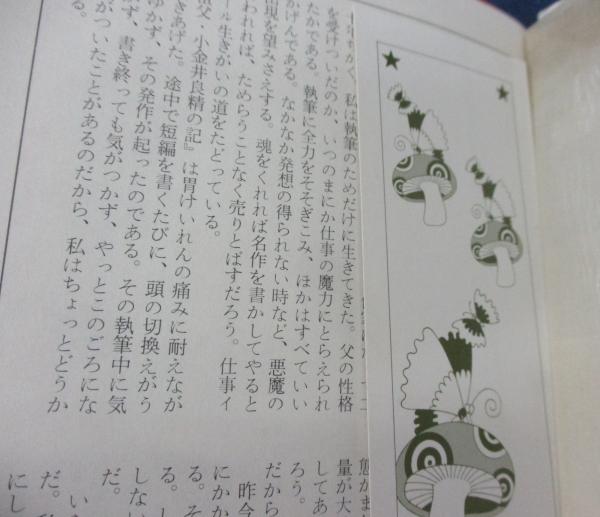 かく、私は執筆のためだけに生きてきた。父の性格
を受けついだのか、いつのまにか仕事の魔力にとらえられ
たかである。執筆に全力をそそぎこみ、ほかはすべていい
かげんである。なかなか発想の得られない時など、悪魔の
現を望みさえする。魂をくれれば名作を書かしてやると
われれば、ためらうことなく売りとばすだろう。仕事イ
ール生きがいの道をたどっている。
祖父・小金井良精の記』は胃けいれんの痛みに耐えなが
きあげた。途中で短編を書くたびに、頭の切換えがう
ゆかず、その発作が起ったのである。その執筆中に気
かず、書き終っても気がつかず、やっとこのごろにな
がついたことがあるのだから、私はちょっとどうか
る。
態がま
量が大
してあ
ろう。
だから
昨今
にかか
る。そ
る。
しない
だ。
いま
だ。
にし